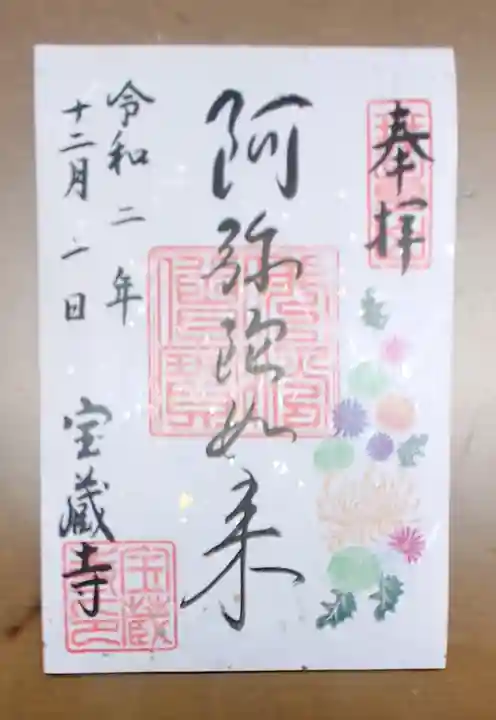 奉拝
阿弥陀如来
令和二年
十二月一日
宝蔵寺